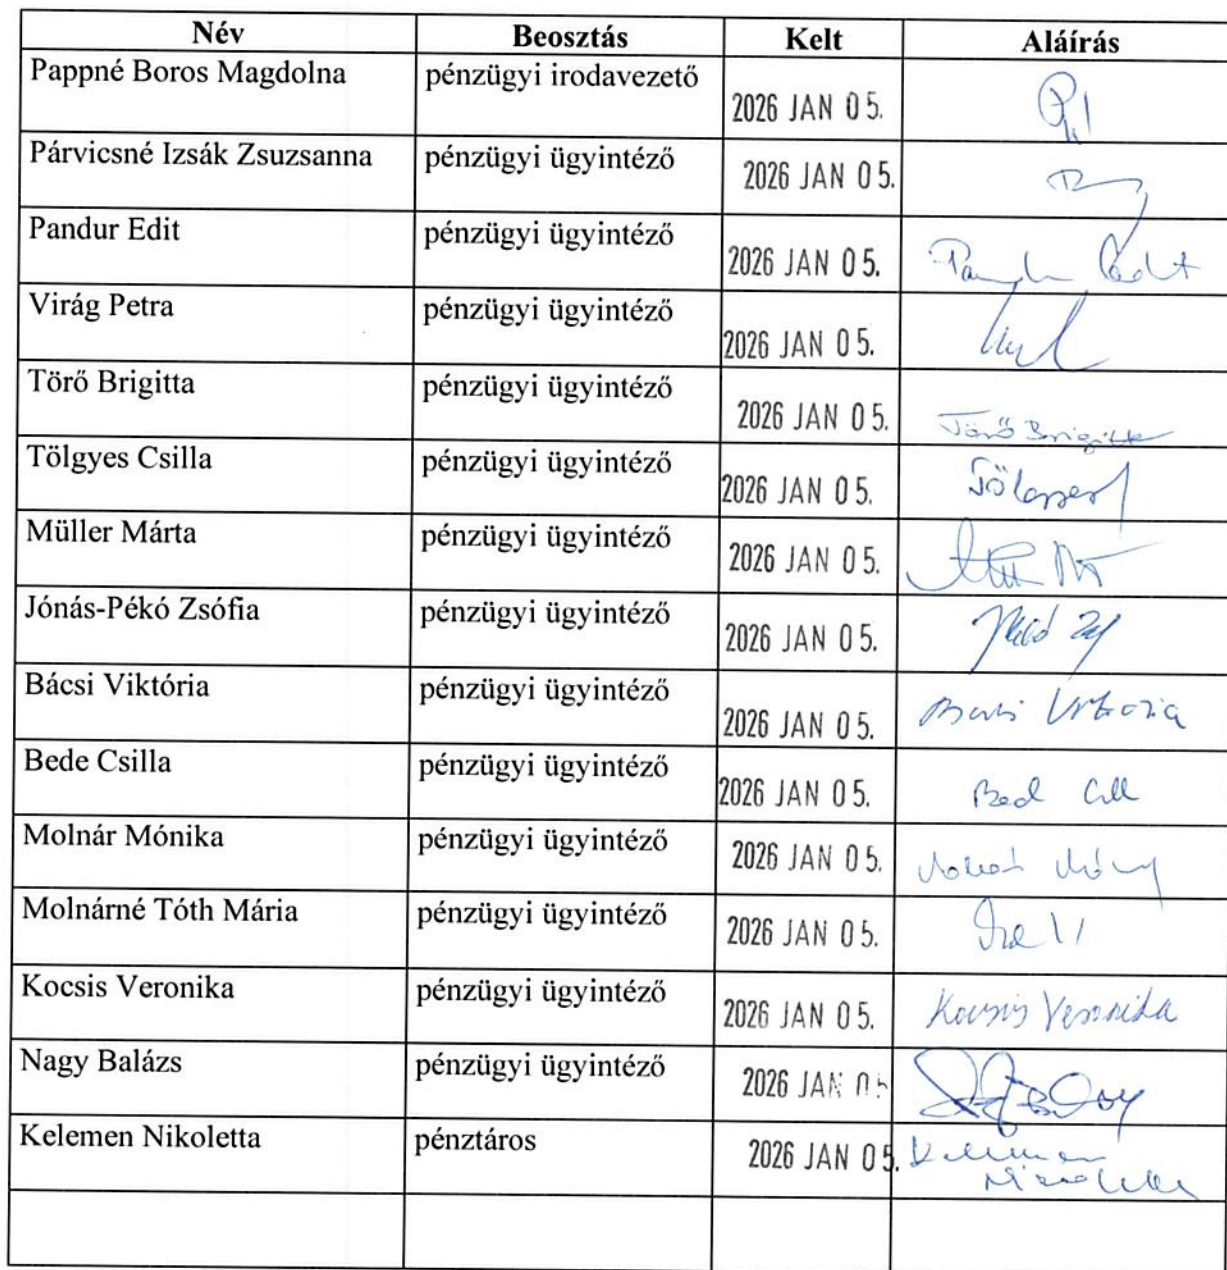 Név Beosztás Kelt Aláírás
Pappné Boros Magdolna pénzügyi irodavezető 2026 JAN 05.
Párvicsné Izsák Zsuzsanna pénzügyi ügyintéző 2026 JAN 05.
Pandur Edit pénzügyi ügyintéző 2026 JAN 05.
Virág Petra pénzügyi ügyintéző 2026 JAN 05.
Törő Brigitta pénzügyi ügyintéző 2026 JAN 05. Törő Brigitta
Tölgyes Csilla pénzügyi ügyintéző 2026 JAN 05.
Müller Márta pénzügyi ügyintéző 2026 JAN 05.
Jónás-Pékó Zsófia pénzügyi ügyintéző 2026 JAN 05.
Bácsi Viktória pénzügyi ügyintéző 2026 JAN 05.
Bede Csilla pénzügyi ügyintéző 2026 JAN 05.
Molnár Mónika pénzügyi ügyintéző 2026 JAN 05.
Molnárné Tóth Mária pénzügyi ügyintéző 2026 JAN 05.
Kocsis Veronika pénzügyi ügyintéző 2026 JAN 05. Kocsis Veronika
Nagy Balázs pénzügyi ügyintéző 2026 JAN 05
Kelemen Nikoletta pénztáros 2026 JAN 05.